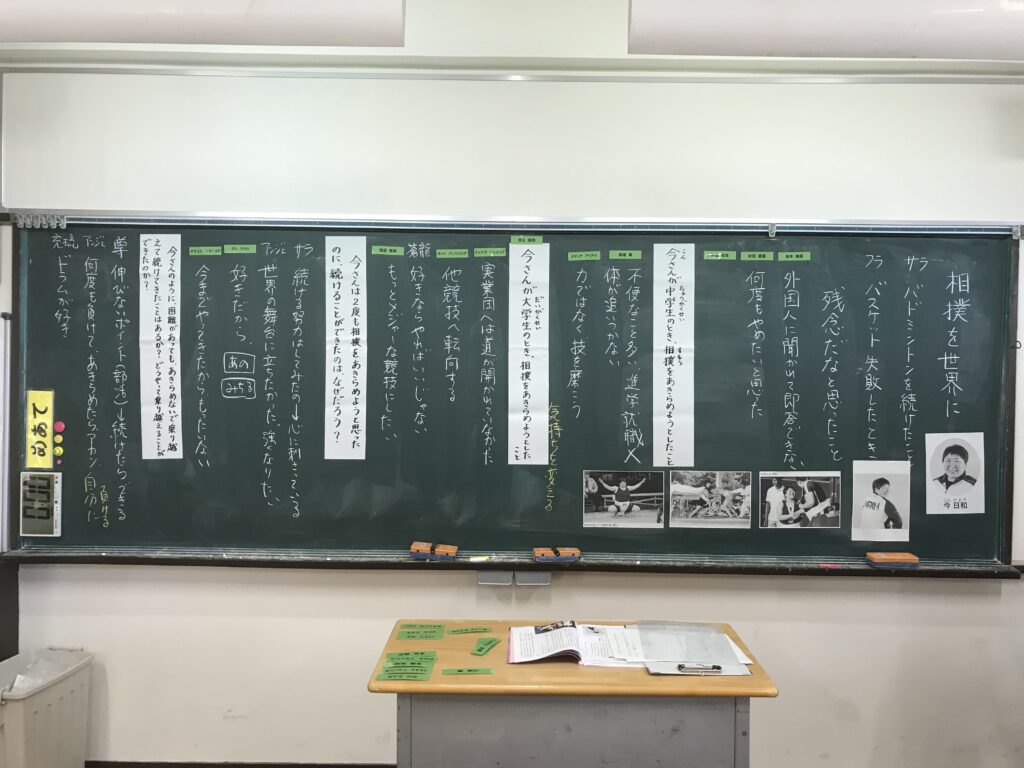 相撲を世界に
サラ バドミントンを続けたこと
フラ バスケット 失敗したとき
残念だなと思ったこと
外国人に聞かれて即答できない
何度もやめたいと思った
こん ちゅうがくせい すもう
今さんが中学生のとき、相撲をあきらめようとしたこと
不便なこと多い 進学 就職×
体が追いつかない
力ではなく技を磨こう
気持ちを変える
だいがくせい
今さんが大学生のとき、相撲をあきらめようとしたこと
実業団へは道が開かれてなかった
他競技へ転向する
蒼龍 好きならやればいいじゃない
もっとメジャーな競技にしたい
今さんは2度も相撲をあきらめようと思ったのに、続けることができたのは、なぜだろう?
サラ 続ける努力はしてみたの→心に刺さっている
アンジェ 世界の舞台に立ちたかった 強くなりたい
好きだから
あの
みちる
今までやってきたからもったいない
今さんのように、困難があってもあきらめないで乗り越えて続けてきたことはあるか?どうやって乗り越えることができたのか?
尊 伸びないポイント(部活)→続けたらできる
アンジェ 何度も負けて、あきらめたらアカン 自分に負ける
ドラムが好き
めあて
こん ひより
今 日和